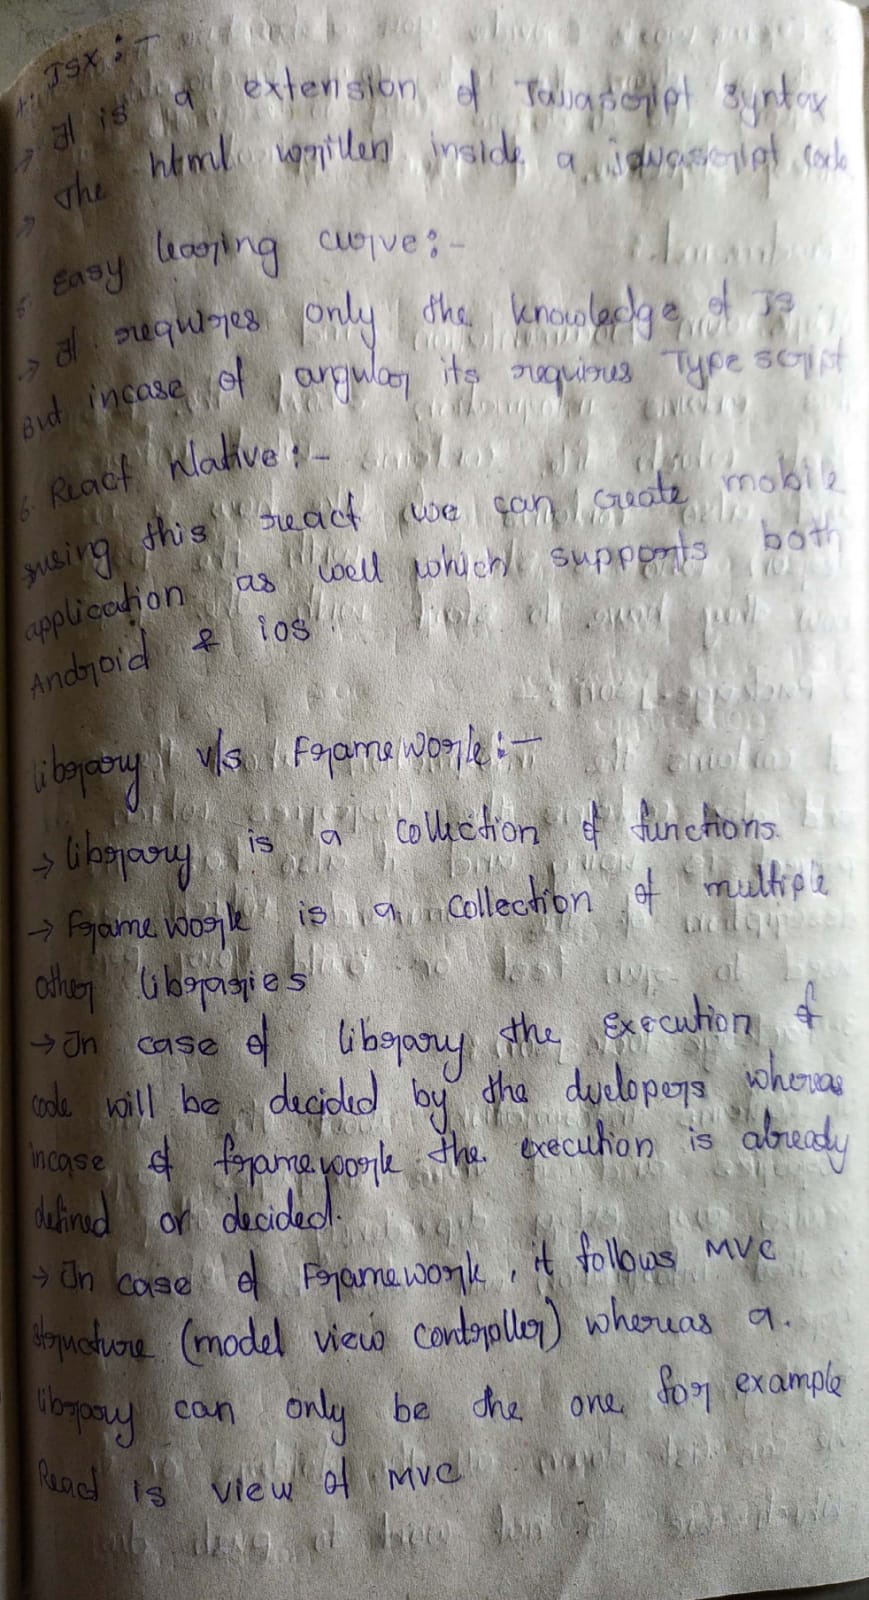 4. JSX :-
→ It is a extension of Javascript syntax
→ The html written inside a javascript code
5. Easy learing curve :-
→ It requires only the knowledge of JS
But incase of angular its requires Type script
6. React Native :-
using this react we can create mobile
application as well which supports both
Android & ios.
library v/s Framework :-
→ library is a collection of functions.
→ Framework is a collection of multiple
other libraries
→ In case of library the execution of
code will be decided by the dvelopers whereas
incase of framework the execution is already
defined or decided.
→ In case of Framework, it follows MVC
structure (model view controller) whereas a.
library can only be the one for example
React is view of MVC